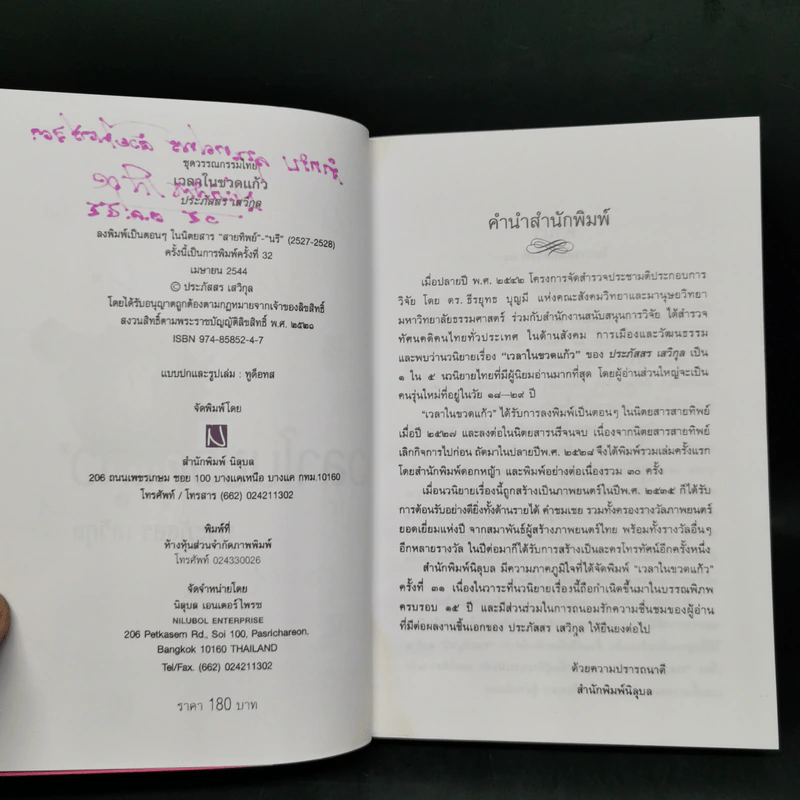 ชุดวรรณกรรมไทย
เวลาในขวดแก้ว
ประภัสสร เสวิกุล
ลงพิมพ์เป็นตอนๆ ในนิตยสาร "สายทิพย์"-"นรี" (2527-2528)
ครั้งนี้เป็นการพิมพ์ครั้งที่ 32
เมษายน 2544
© ประภัสสร เสวิกุล
โดยได้รับอนุญาตถูกต้องตามกฎหมายจากเจ้าของลิขสิทธิ์
สงวนสิทธิ์ตามพระราชบัญญัติลิขสิทธิ์ พ.ศ. ๒๕๒๑
ISBN 974-85852-4-7
แบบปกและรูปเล่ม : ทูดีอทส
จัดพิมพ์โดย
สำนักพิมพ์ นิลุบล
206 ถนนเพชรเกษม ซอย 100 บางแคเหนือ บางแค กทม.10160
โทรศัพท์ / โทรสาร (662) 024211302
พิมพ์ที่
ห้างหุ้นส่วนจำกัดภาพพิมพ์
โทรศัพท์ 024330026
จัดจำหน่ายโดย
นิลุบล เอนเตอร์ไพรซ
NILUBOL ENTERPRISE
206 Petkasem Rd., Soi 100, Pasrichareon,
Bangkok 10160 THAILAND
Tel/Fax. (662) 024211302
ราคา 180 บาท
คำนำสำนักพิมพ์
เมื่อปลายปี พ.ศ. ๒๕๔๒ โครงการจัดสำรวจประชามติประกอบการ
วิจัย โดย ดร.ธีรยุทธ บุญมี แห่งคณะสังคมวิทยาและมานุษยวิทยา
มหาวิทยาลัยธรรมศาสตร์ ร่วมกับสำนักงานสนับสนุนการวิจัย ได้สำรวจ
ทัศนคติคนไทยทั่วประเทศ ในด้านสังคม การเมืองและวัฒนธรรม
และพบว่านวนิยายเรื่อง "เวลาในขวดแก้ว" ของ ประภัสสร เสวิกุล เป็น
๑ ใน ๕ นวนิยายไทยที่มีผู้นิยมอ่านมากที่สุด โดยผู้อ่านส่วนใหญ่จะเป็น
คนรุ่นใหม่ที่อยู่ในวัย ๑๘-๒๙ ปี
"เวลาในขวดแก้ว" ได้รับการลงพิมพ์เป็นตอนๆ ในนิตยสารสายทิพย์
เมื่อปี ๒๕๒๗ และลงต่อในนิตยสารนรีจนจบ เนื่องจากนิตยสารสายทิพย์
เลิกกิจการไปก่อน ถัดมาในปลายปีพ.ศ. ๒๕๒๘ จึงได้พิมพ์รวมเล่มครั้งแรก
โดยสำนักพิมพ์ดอกหญ้า และพิมพ์อย่างต่อเนื่องรวม ๓๐ ครั้ง
เมื่อนวนิยายเรื่องนี้ถูกสร้างเป็นภาพยนตร์ในปีพ.ศ. ๒๕๓๕ ก็ได้รับ
การต้อนรับอย่างดียิ่งทั้งด้านรายได้ คำชมเชย รวมทั้งครองรางวัลภาพยนตร์
ยอดเยี่ยมแห่งปี จากสมาพันธ์ผู้สร้างภาพยนตร์ไทย พร้อมทั้งรางวัลอื่นๆ
อีกหลายรางวัล ในปีต่อมาก็ได้รับการสร้างเป็นละครโทรทัศน์อีกครั้งหนึ่ง
สำนักพิมพ์นิลุบล มีความภาคภูมิใจที่ได้จัดพิมพ์ "เวลาในขวดแก้ว"
ครั้งที่ ๓๑ เนื่องในวาระที่นวนิยายเรื่องนี้ถือกำเนิดขึ้นมาในบรรณพิภพ
ครบรอบ ๑๕ ปี และมีส่วนร่วมในการถนอมรักความชื่นชมของผู้อ่าน
ที่มีต่อผลงานชิ้นเอกของ ประภัสสร เสวิกุล ให้ยืนยงต่อไป
ด้วยความปรารถนาดี
สำนักพิมพ์นิลุบล